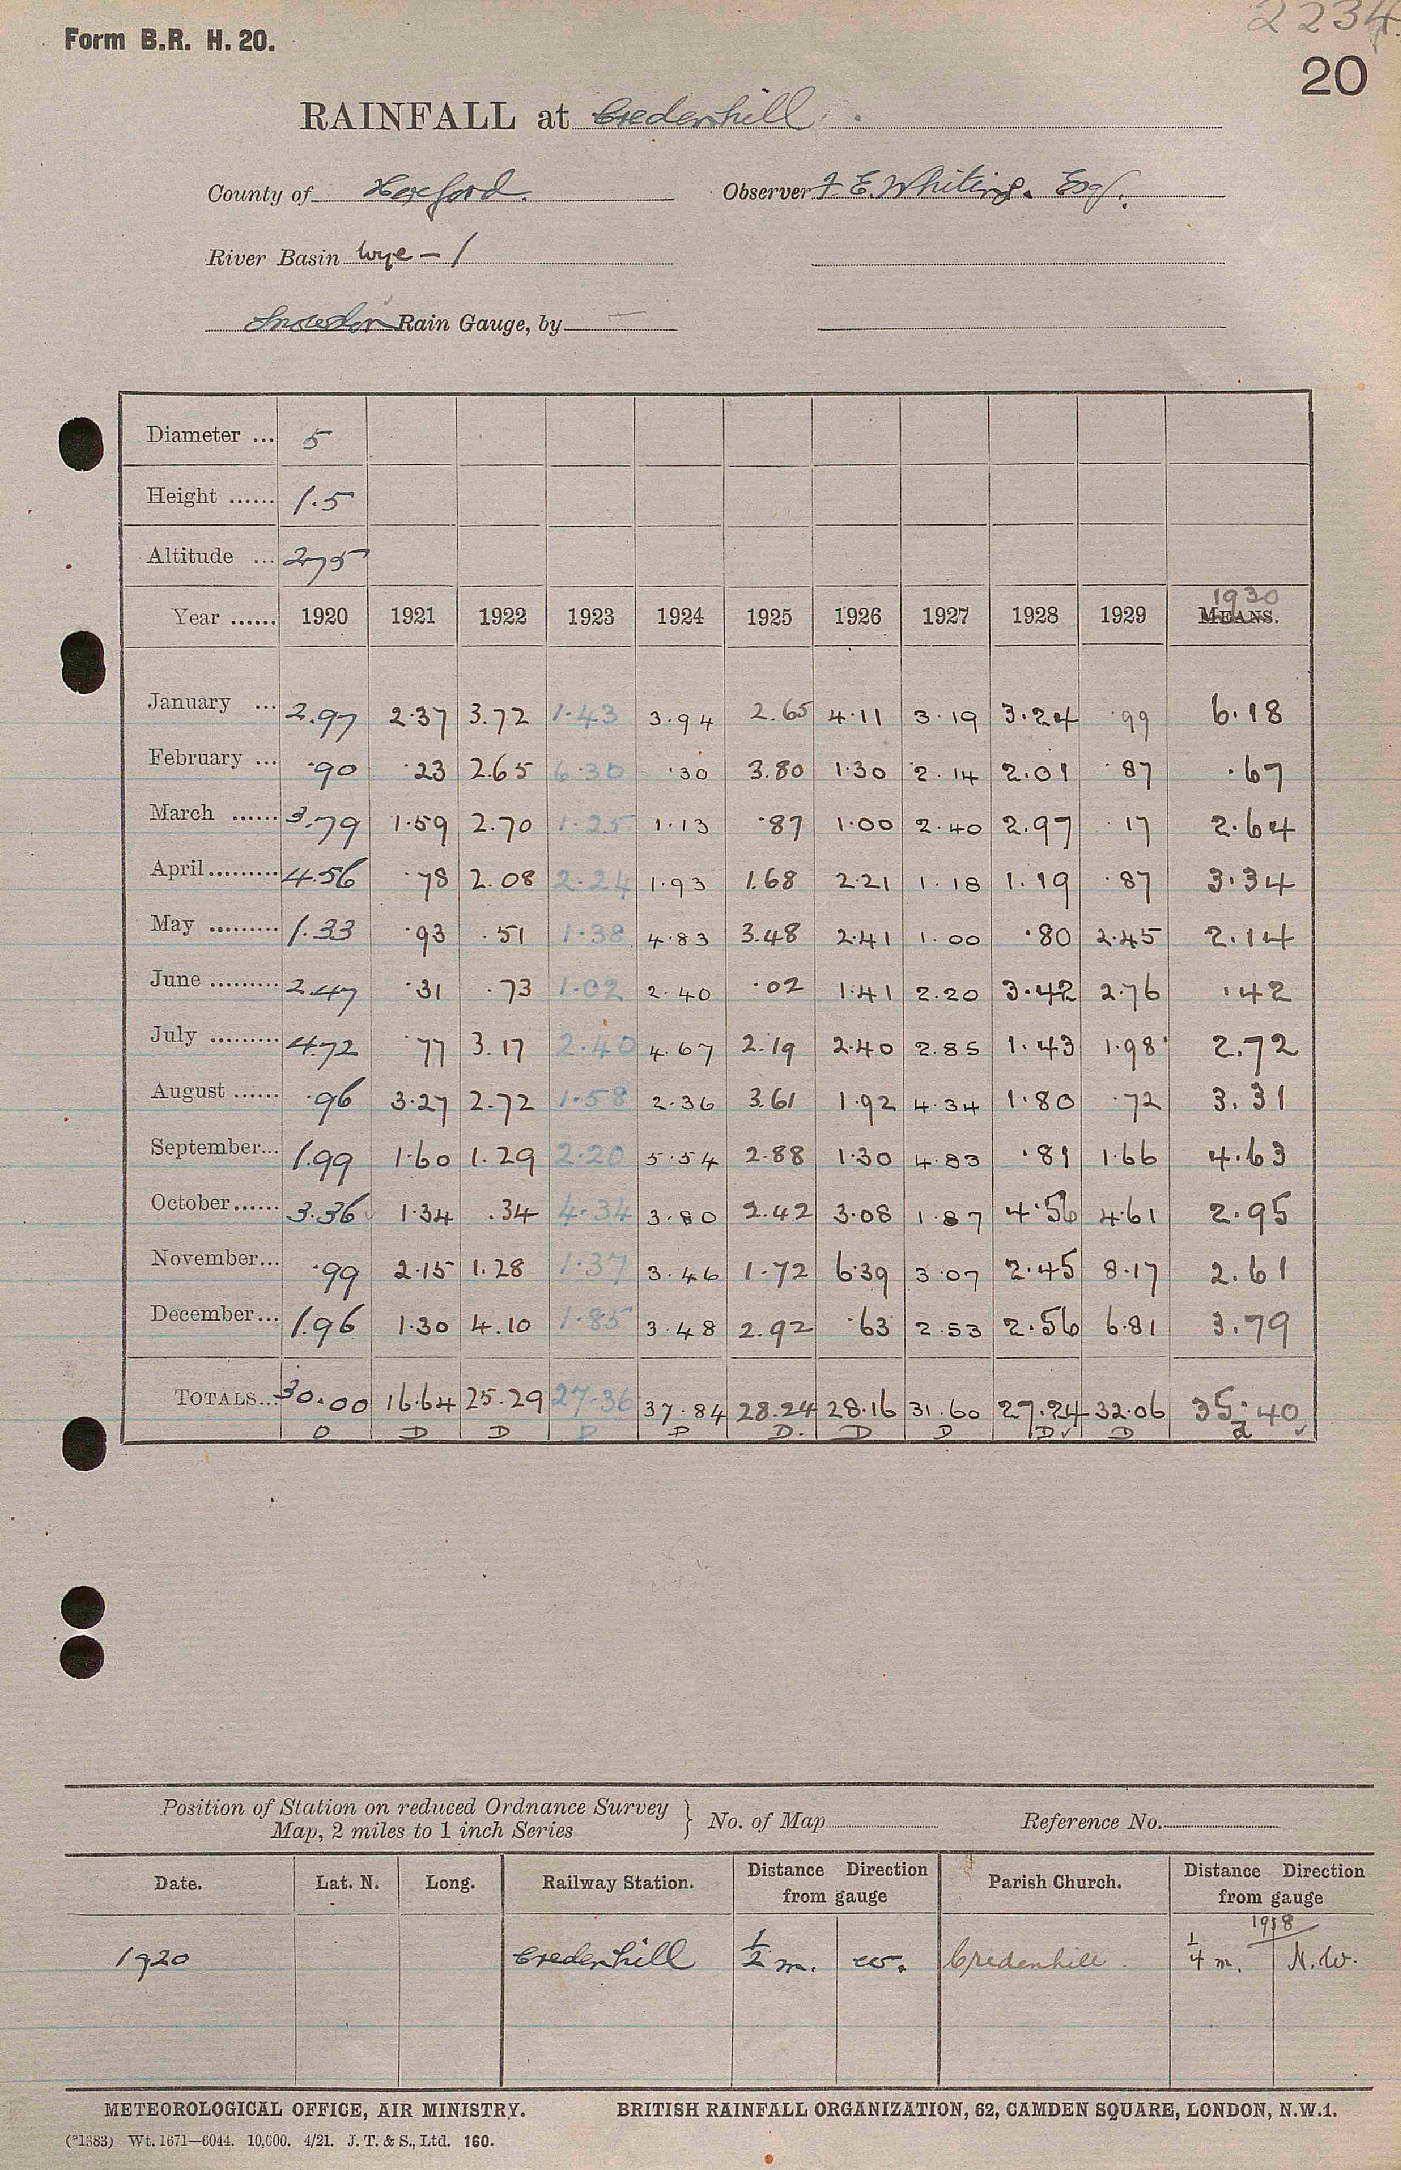 2234
Form B.R. H. 20.
20
RAINFALL at Credenhill.
County of Hereford. Observer F. E. Whiting. Esq.
River Basin Wye - 1
Snowdon Rain Gauge, by —
Diameter ... 5
Height ...... 1.5
Altitude ... 275
1930
Year ...... 1920 1921 1922 1923 1924 1925 1926 1927 1928 1929 MEANS.
January ... 2.97 2.37 3.72 1.43 3.94 2.65 4.11 3.19 3.24 .99 6.18
February ... .90 .23 2.65 6.30 .30 3.80 1.30 2.14 2.01 .87 .67
March ...... 3.79 1.59 2.70 1.25 1.13 .87 1.00 2.40 2.97 .17 2.64
April ......... 4.56 .78 2.08 2.24 1.93 1.68 2.21 1.18 1.19 .87 3.34
May ......... 1.33 .93 .51 1.38 4.83 3.48 2.41 1.00 .80 2.45 2.14
June ......... 2.47 .31 .73 1.02 2.40 .02 1.41 2.20 3.42 2.76 .42
July ......... 4.72 .77 3.17 2.40 4.67 2.19 2.40 2.85 1.43 1.98 2.72
August ...... .96 3.27 2.72 1.58 2.36 3.61 1.92 4.34 1.80 .72 3.31
September... 1.99 1.60 1.29 2.20 5.54 2.88 1.30 4.83 .81 1.66 4.63
October ...... 3.36 1.34 .34 4.34 3.80 2.42 3.08 1.87 4.56 4.61 2.95
November... .99 2.15 1.28 1.37 3.46 1.72 6.39 3.07 2.45 8.17 2.61
December ... 1.96 1.30 4.10 1.85 3.48 2.92 .63 2.53 2.56 6.81 3.79
TOTALS... 30.00 16.64 25.29 27.36 37.84 28.24 28.16 31.60 27.24 32.06 35.40
D D D D D D. D D D✓ D d ✓
Position of Station on reduced Ordnance Survey
Map, 2 miles to 1 inch Series } No. of Map Reference No.
Date. Lat. N. Long. Railway Station. Distance Direction from gauge Parish Church. Distance Direction from gauge
1918
1920 Credenhill ½ m. W. Credenhill. ¼ m. N.W.
METEOROLOGICAL OFFICE, AIR MINISTRY. BRITISH RAINFALL ORGANIZATION, 62, CAMDEN SQUARE, LONDON, N.W.1.
(*1383) Wt. 1671—6044. 10,000. 4/21. J. T. & S., Ltd. 160.